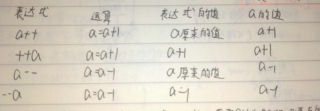 表达式 运算 表达式的值 a的值
a++ a=a+1 a原来的值 a+1
++a a=a+1 a+1 a+1
a-- a=a-1 a原来的值 a-1
--a a=a-1 a-1 a-1